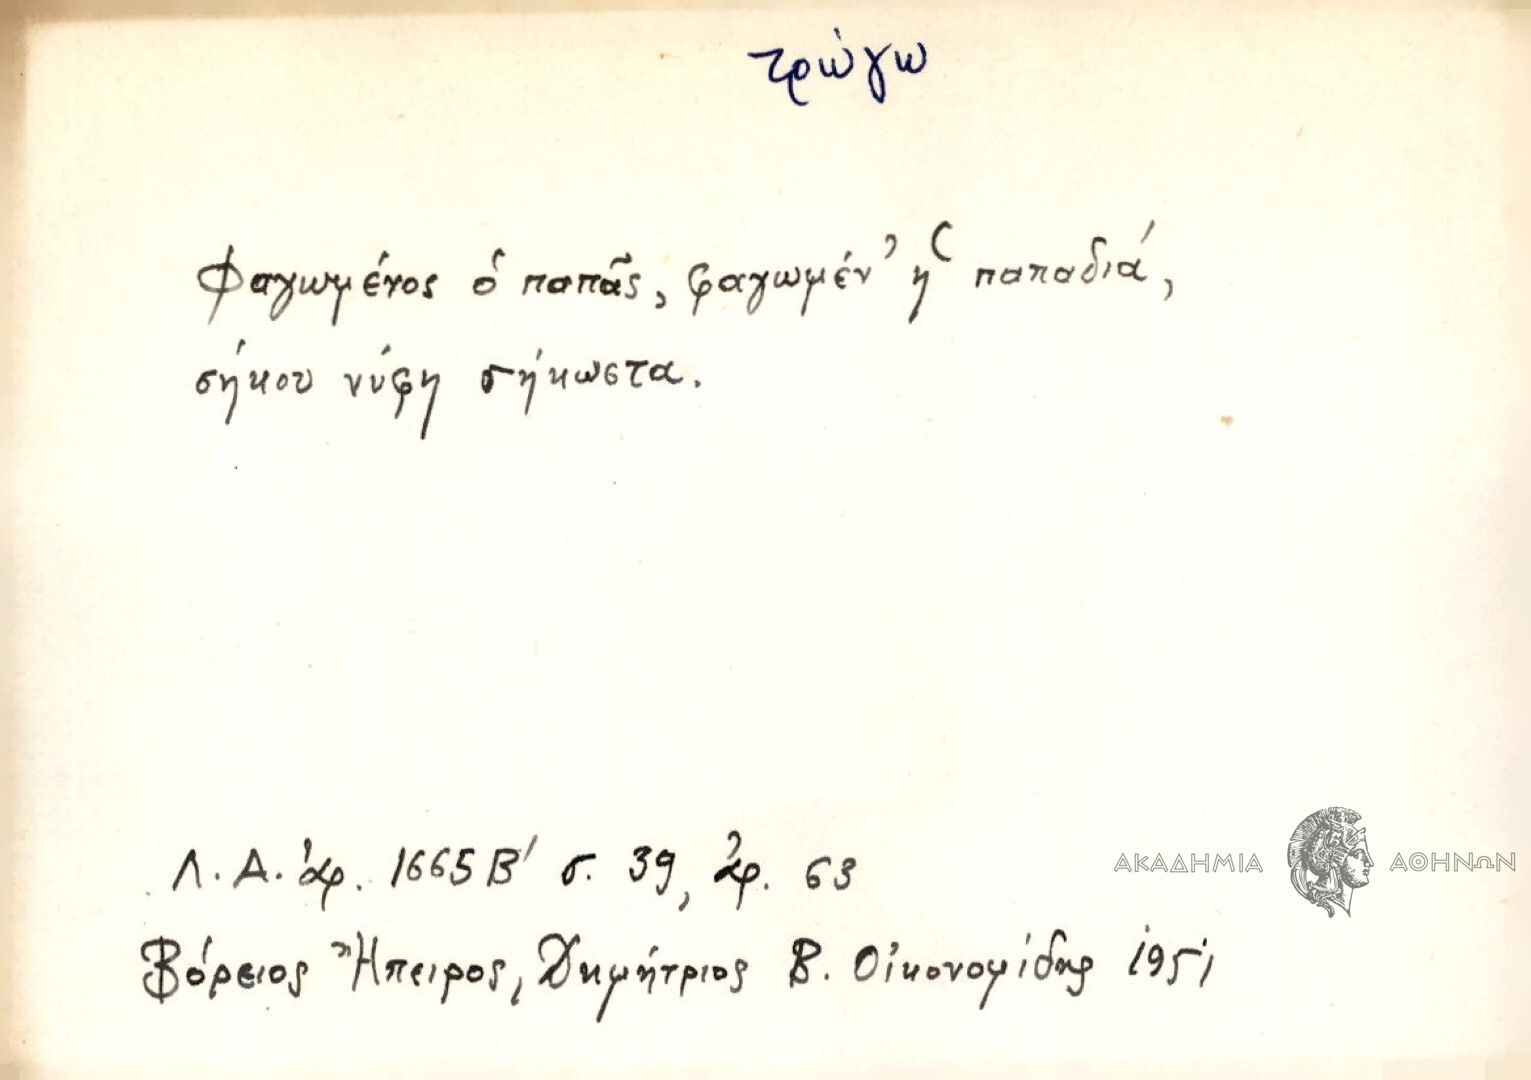 τρώγω
Φαγωμένος ὁ παπᾶς, φαγωμέν' ἡ παπαδιά,
σήκου νύφη σήκωστα.
Λ. Α. ἀρ. 1665 Β' σ. 39, ἀρ. 63
ΑΚΑΔΗΜΙΑ ΑΘΗΝΩΝ
Βόρειος Ἤπειρος, Δημήτριος Β. Οἰκονομίδης 1951